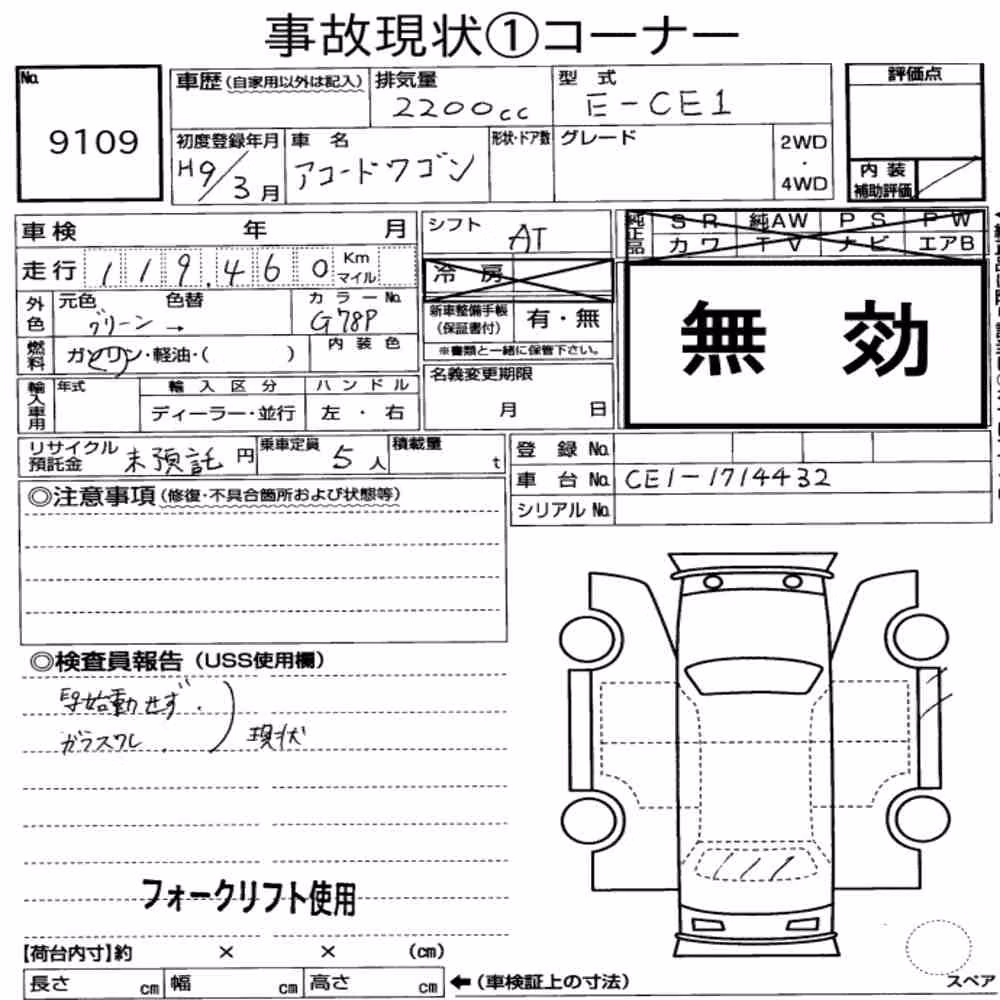 事故現状①コーナー
No.
9109
車歴(自家用以外は記入)
排気量
2200cc
型 式
E-CE1
評価点
初度登録年月
H9/3月
車 名
アコードワゴン
形状・ドア数
グレード
2WD
・
4WD
内 装
補助評価
車検 年 月
シフト
AT
純正品
SR 純AW PS PW
カワ TV ナビ エアB
走行 119.460 Km
マイル
冷 房
外色
元色 色替
グリーン →
カラーNo.
G78P
新車整備手帳
(保証書付)
有・無
※書類と一緒に保管下さい。
無 効
燃料
ガソリン・軽油・( )
内装色
輸入車用
年式
輸入区分
ディーラー・並行
ハンドル
左 ・ 右
名義変更期限
月 日
リサイクル
預託金
未預託 円
乗車定員
5人
積載量
t
登 録 No.
車 台 No. CE1-1714432
シリアル No.
◎注意事項(修復・不具合箇所および状態等)
◎検査員報告(USS使用欄)
始動せず.
ガラスワレ.
現状
フォークリフト使用
【荷台内寸】約 × × (cm)
長さ cm 幅 cm 高さ cm
←(車検証上の寸法)
スペア